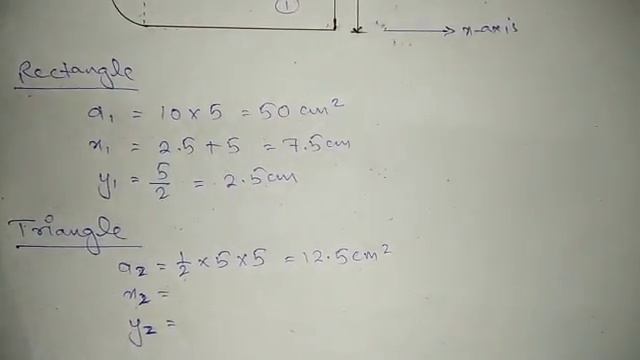 1
x-axis
Rectangle
a₁ = 10 × 5 = 50 cm²
x₁ = 2.5 + 5 = 7.5cm
y₁ = 5/2 = 2.5cm
Triangle
a₂ = 1/2 × 5 × 5 = 12.5 cm²
x₂ =
y₂ =